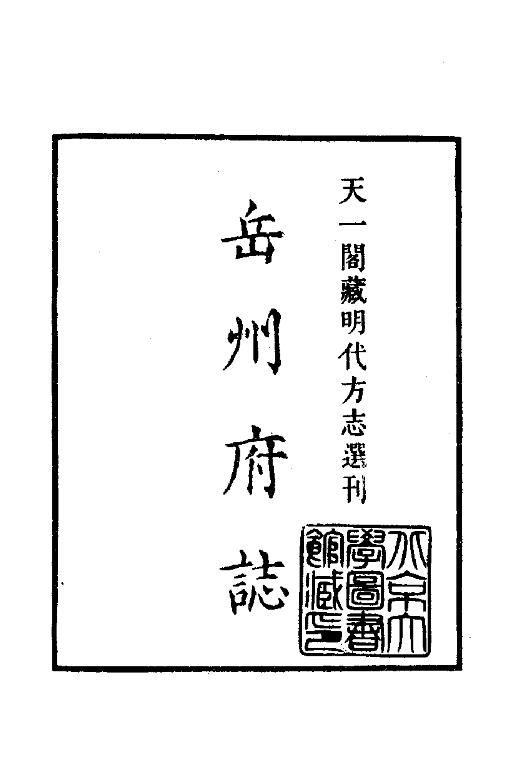 天一閣藏明代方志選刊
岳州府誌
北京大
學圖書
館藏印